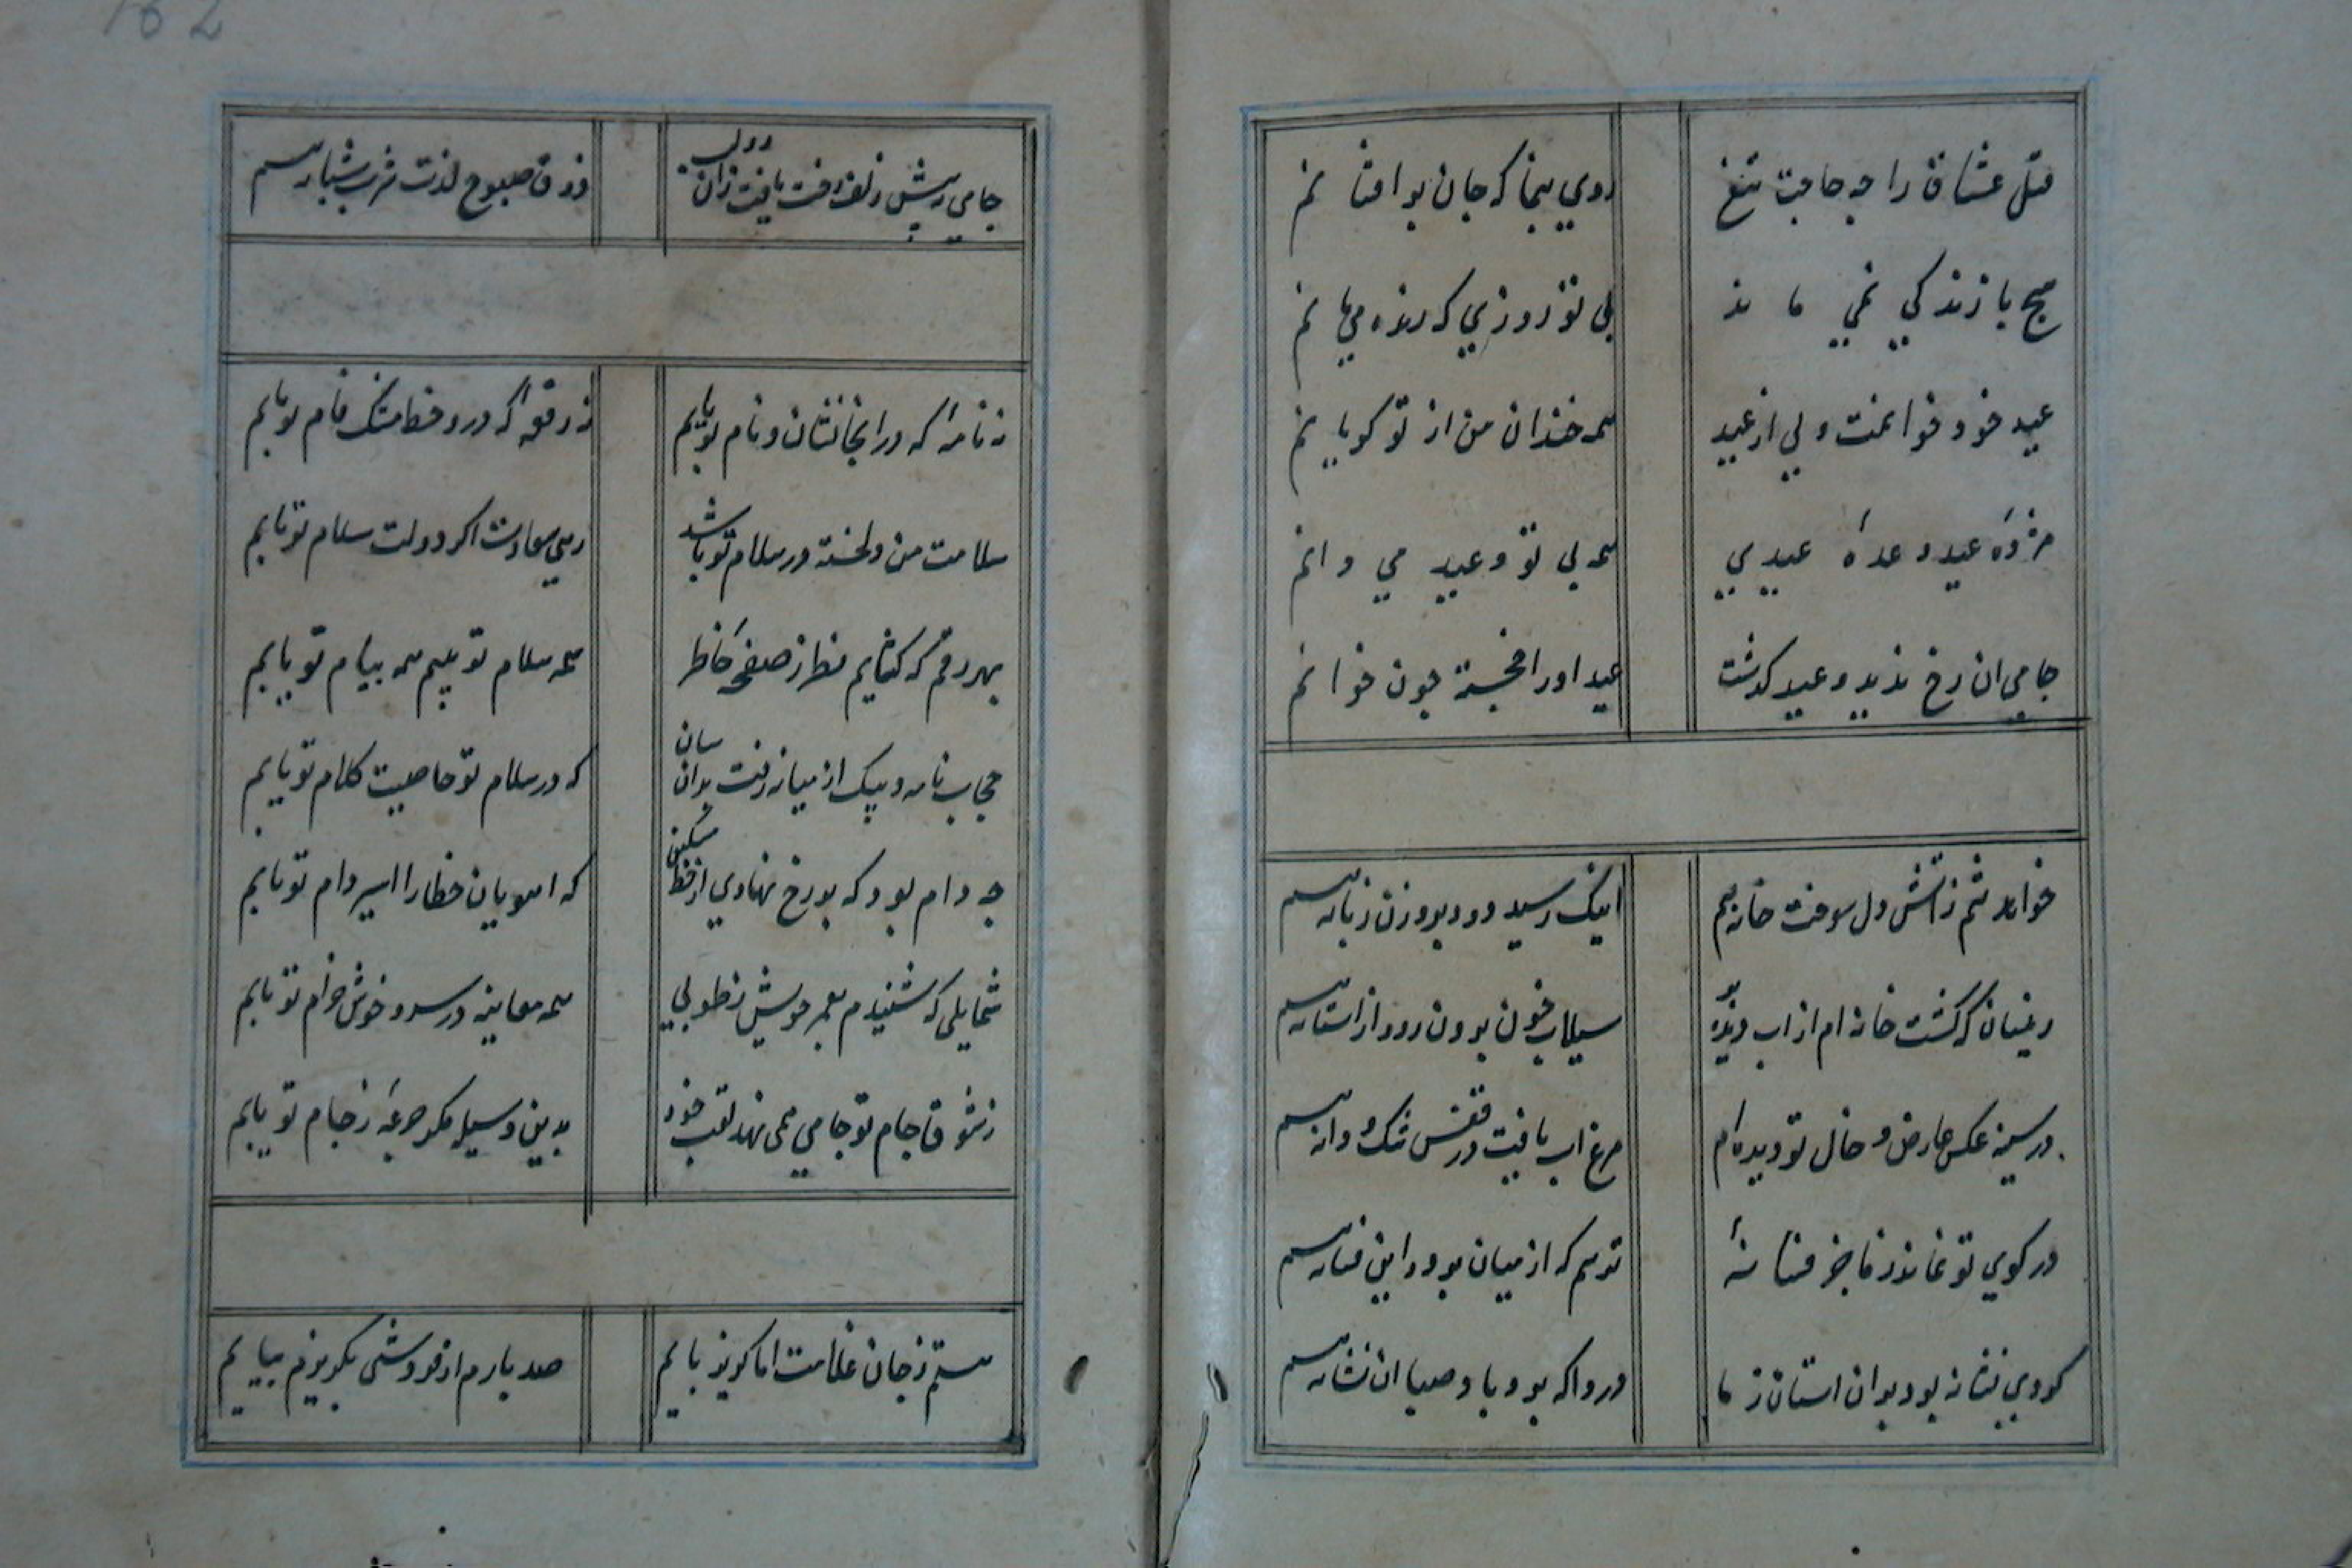 قتل عشاق را چه حاجت تیغ
روی بنما که جان بر افشانم
هیچ با زندگی نمی ماند
بی تو روزی که زنده می مانم
عید خود خوانمت ولی از عید
همه خندان من از تو گریانم
مژدهٔ عید وعدهٔ عیدی
همه بی تو وعید می دانم
جامی ان رخ ندید و عید گذشت
عید او را خجسته چون خوانم
خواهد شم ز آتش دل سوخت خانه هم
اینک رسید دود بروزن زبانه هم
زینسان که گشت خانه ام از اب دیده پر
سیلاب خون برون رود از استانه هم
در سینه عکس عارض و خال تو دیده ام
مرغ اب یافت در قفس تنگ و دانه هم
در کوی تو نماند ز ما جز فسانهٔ
ترسم که از میان برود این فسانه هم
گردی نشانه بود بران استان ز ما
دردا که برد باد صبا ان نشانه هم
جامی ز پیش زلف و رخت یافت زان دو لب
ذوق صبوح لذت شرب شبانه هم
نه نامهٔ که در انجا نشان و نام تو یابم
نه رقعهٔ که درو خط مشک فام تو یابم
سلامت من دلخسته در سلام تو باشد
زهی سعادت اگر دولت سلام تو یابم
بهر رقم که گشایم نظر ز صفحهٔ خاطر
همه سلام تو بینم همه پیام تو یابم
حجاب نامه و پیک از میانه رفت بدان سان
که در سلام تو خاصیت کلام تو یابم
چه دام بود که بر رخ نهادی از خط مشکین
که اهویان خطا را اسیر دام تو یابم
شمایلی که شنیدم بعمر خویش ز طوبی
همه معاینه در سرو خوش خرام تو یابم
ز شوق جام تو جامی همی نهد لقب خود
بدین وسیله مگر جرعهٔ ز جام تو یابم
هستم ز جان غلامت اما گریز پایم
صد بارم ار فروشی بگریزم بیایم